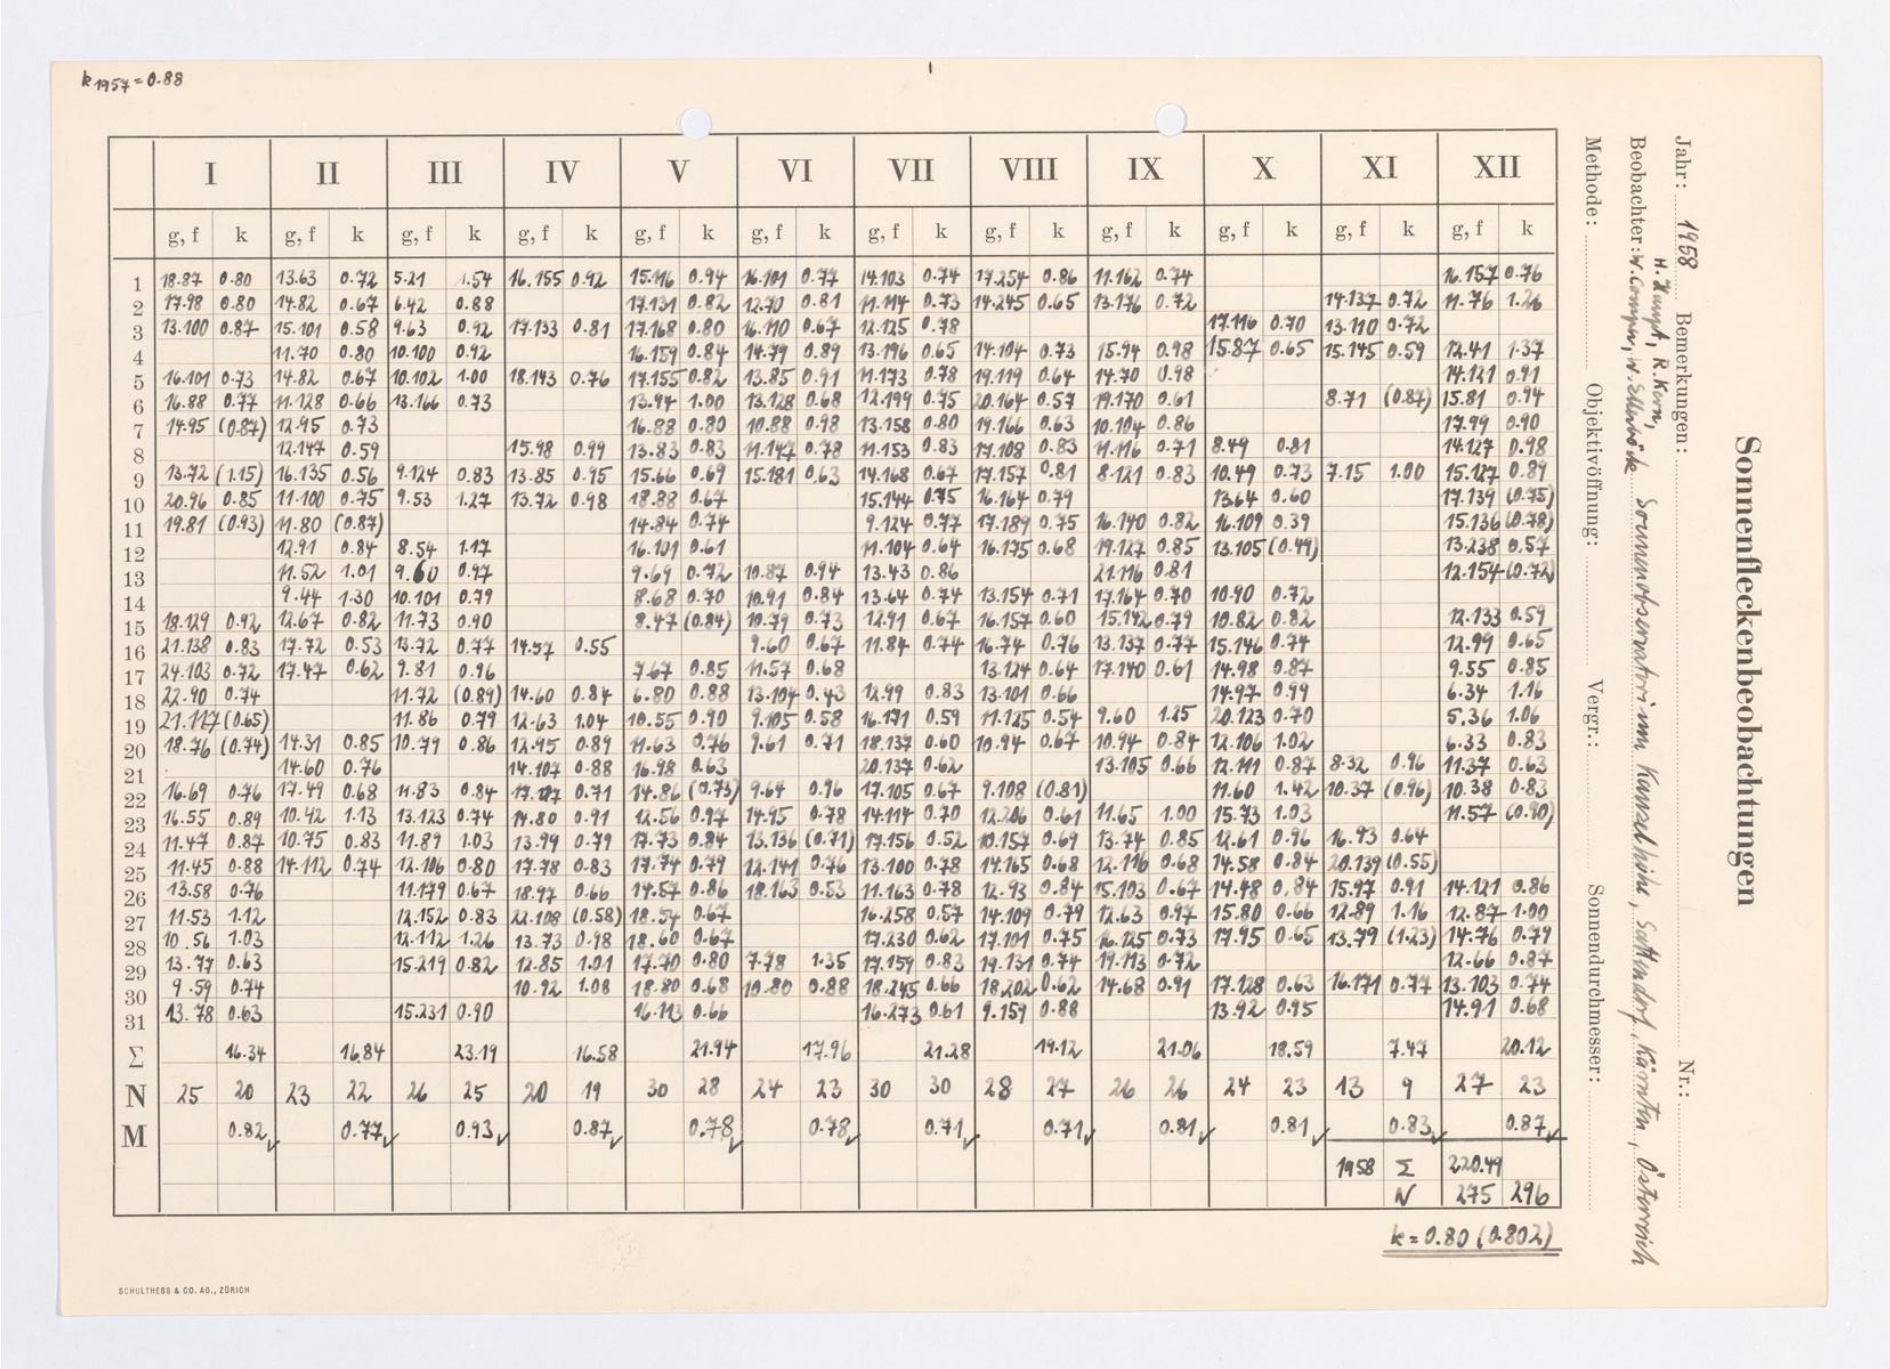 k 1957 = 0.88
I II III IV V VI VII VIII IX X XI XII
g, f k g, f k g, f k g, f k g, f k g, f k g, f k g, f k g, f k g, f k g, f k g, f k
1 18.87 0.80 13.63 0.72 5.21 1.54 16.155 0.92 15.116 0.94 16.101 0.77 14.103 0.74 17.254 0.86 11.162 0.74 16.157 0.76
2 17.98 0.80 14.82 0.67 6.42 0.88 17.131 0.82 12.70 0.81 11.114 0.73 14.245 0.65 13.176 0.72 14.137 0.72 11.76 1.26
3 13.100 0.87 15.101 0.58 9.63 0.92 17.133 0.81 17.168 0.80 16.110 0.67 12.125 0.78 17.116 0.70 13.110 0.72
4 11.70 0.80 10.100 0.92 16.159 0.84 14.79 0.89 13.196 0.65 14.104 0.73 15.94 0.98 15.87 0.65 15.145 0.59 12.41 1.37
5 16.101 0.73 14.82 0.67 10.102 1.00 18.143 0.76 17.155 0.82 13.85 0.91 11.173 0.78 19.119 0.64 14.70 0.98 14.121 0.91
6 16.88 0.77 11.128 0.66 13.166 0.73 13.94 1.00 13.128 0.68 12.199 0.75 20.164 0.57 19.170 0.61 8.71 (0.87) 15.81 0.94
7 14.95 (0.87) 12.95 0.73 16.88 0.80 10.88 0.98 13.158 0.80 19.166 0.63 10.104 0.86 17.99 0.90
8 12.147 0.59 15.98 0.99 13.83 0.83 11.147 0.78 11.153 0.83 17.108 0.83 11.116 0.71 8.49 0.81 14.127 0.98
9 13.72 (1.15) 16.135 0.56 9.124 0.83 13.85 0.95 15.66 0.69 15.181 0.63 14.168 0.67 17.157 0.81 8.121 0.83 10.49 0.73 7.15 1.00 15.127 0.89
10 20.96 0.85 11.100 0.75 9.53 1.27 13.72 0.98 18.88 0.67 15.144 0.75 16.164 0.79 13.64 0.60 17.139 (0.75)
11 19.81 (0.93) 11.80 (0.87) 14.84 0.74 9.124 0.77 17.189 0.75 16.140 0.82 16.109 0.39 15.136 (0.78)
12 12.91 0.84 8.54 1.17 16.101 0.61 11.104 0.64 16.175 0.68 19.127 0.85 13.105 (0.49) 13.238 0.57
13 11.52 1.01 9.60 0.97 9.69 0.72 10.87 0.94 13.43 0.86 21.116 0.81 12.154 (0.72)
14 9.44 1.30 10.101 0.79 8.68 0.70 10.91 0.84 13.64 0.74 13.154 0.71 17.164 0.70 10.90 0.72
15 18.129 0.92 12.67 0.82 11.73 0.90 8.47 (0.84) 10.79 0.73 12.91 0.67 16.157 0.60 15.142 0.79 10.82 0.82 12.133 0.59
16 21.138 0.83 17.72 0.53 13.72 0.77 14.57 0.55 9.60 0.67 11.84 0.74 16.74 0.76 13.137 0.77 15.146 0.74 12.99 0.65
17 24.103 0.72 17.47 0.62 9.81 0.96 7.67 0.85 11.57 0.68 13.124 0.64 17.140 0.61 14.98 0.87 9.55 0.85
18 22.90 0.74 11.72 (0.89) 14.60 0.84 6.80 0.88 13.104 0.43 12.99 0.83 13.101 0.66 14.97 0.99 6.34 1.16
19 21.117 (0.65) 11.86 0.79 12.63 1.04 10.55 0.90 9.105 0.58 16.171 0.59 11.125 0.54 9.60 1.25 20.123 0.70 5.36 1.06
20 18.76 (0.74) 14.31 0.85 10.79 0.86 12.95 0.89 11.63 0.76 9.61 0.71 18.137 0.60 10.94 0.67 10.94 0.84 12.106 1.02 6.33 0.83
21 14.60 0.76 14.107 0.88 16.98 0.63 20.137 0.62 13.105 0.66 12.111 0.87 8.32 0.96 11.37 0.63
22 16.69 0.76 17.49 0.68 11.83 0.84 17.127 0.71 14.86 (0.73) 9.64 0.96 17.105 0.67 9.108 (0.81) 11.60 1.42 10.37 (0.96) 10.38 0.83
23 16.55 0.89 10.42 1.13 13.123 0.74 14.80 0.91 12.56 0.97 14.95 0.78 14.114 0.70 12.206 0.61 11.65 1.00 15.73 1.03 11.57 (0.90)
24 11.47 0.87 10.75 0.83 11.89 1.03 13.99 0.79 17.73 0.84 13.136 (0.71) 17.156 0.52 10.157 0.69 13.74 0.85 12.61 0.96 16.93 0.64
25 11.45 0.88 14.112 0.74 12.106 0.80 17.78 0.83 17.74 0.79 12.141 0.76 13.100 0.78 14.165 0.68 12.116 0.68 14.58 0.84 20.139 (0.55)
26 13.58 0.76 11.179 0.67 18.97 0.66 14.57 0.86 18.163 0.53 11.163 0.78 12.93 0.84 15.103 0.67 14.48 0.84 15.97 0.91 14.121 0.86
27 11.53 1.12 12.152 0.83 22.108 (0.58) 18.54 0.67 16.258 0.57 14.109 0.79 12.63 0.97 15.80 0.66 12.89 1.16 12.87 1.00
28 10.56 1.03 12.112 1.26 13.73 0.98 18.60 0.67 17.230 0.62 17.101 0.75 16.125 0.73 17.95 0.65 13.79 (1.23) 14.76 0.79
29 13.77 0.63 15.219 0.82 12.85 1.01 17.70 0.80 7.78 1.35 17.159 0.83 19.131 0.74 19.113 0.72 12.66 0.87
30 9.59 0.74 10.92 1.08 18.80 0.68 10.80 0.88 18.245 0.66 18.202 0.62 14.68 0.91 17.128 0.63 16.171 0.77 13.103 0.74
31 13.78 0.63 15.231 0.90 16.113 0.66 16.273 0.61 9.159 0.88 13.92 0.95 14.91 0.68
Σ 16.34 16.84 23.19 16.58 21.94 17.96 21.28 19.12 21.06 18.59 7.47 20.12
N 25 20 23 22 26 25 20 19 30 28 24 23 30 30 28 27 26 26 24 23 13 9 27 23
M 0.82 0.77 0.93 0.87 0.78 0.78 0.71 0.71 0.81 0.81 0.83 0.87
1958 Σ 220.49
N 275 296
k = 0.80 (0.802)
SCHULTHESS & CO. AG., ZÜRICH
Sonnenfleckenbeobachtungen
Jahr: 1958 Bemerkungen: Nr.:
H. Haupt, R. Kern,
Beobachter: W. Sonnenobservatorium Kanzelhöhe, Sattendorf, Kärnten, Österreich
Methode: Objektivöffnung: Vergr.: Sonnendurchmesser: